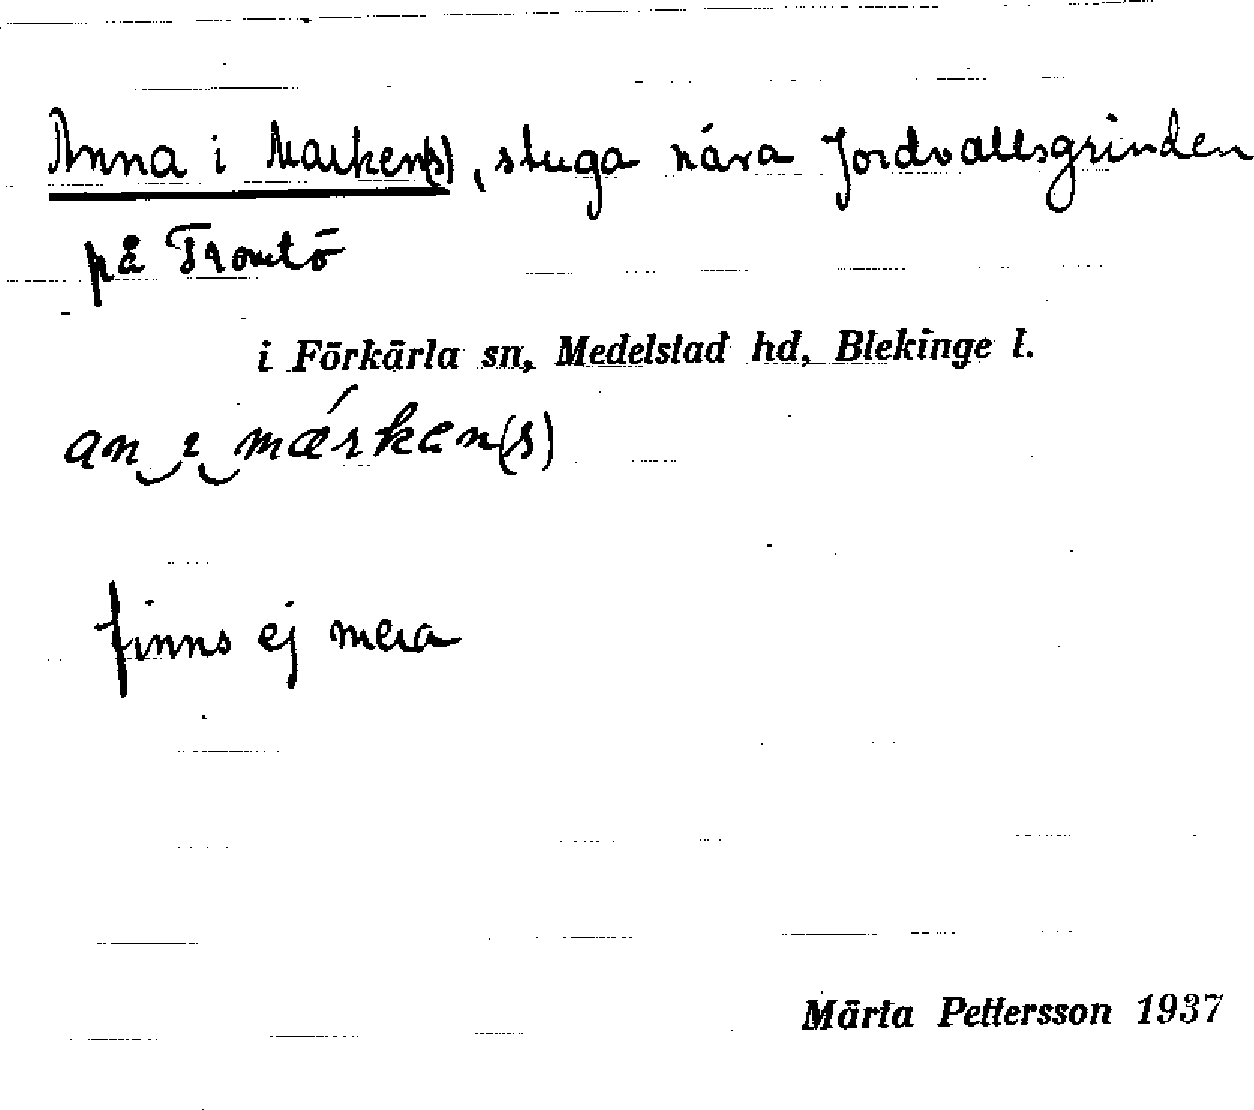 Anna i Marken(s), stuga nära Jordvallsgrinden
på Tromtö
i Förkärla sn, Medelstad hd, Blekinge l.
an‿ɪ‿mǽrkən(s)
finns ej mera
Märta Pettersson 1937